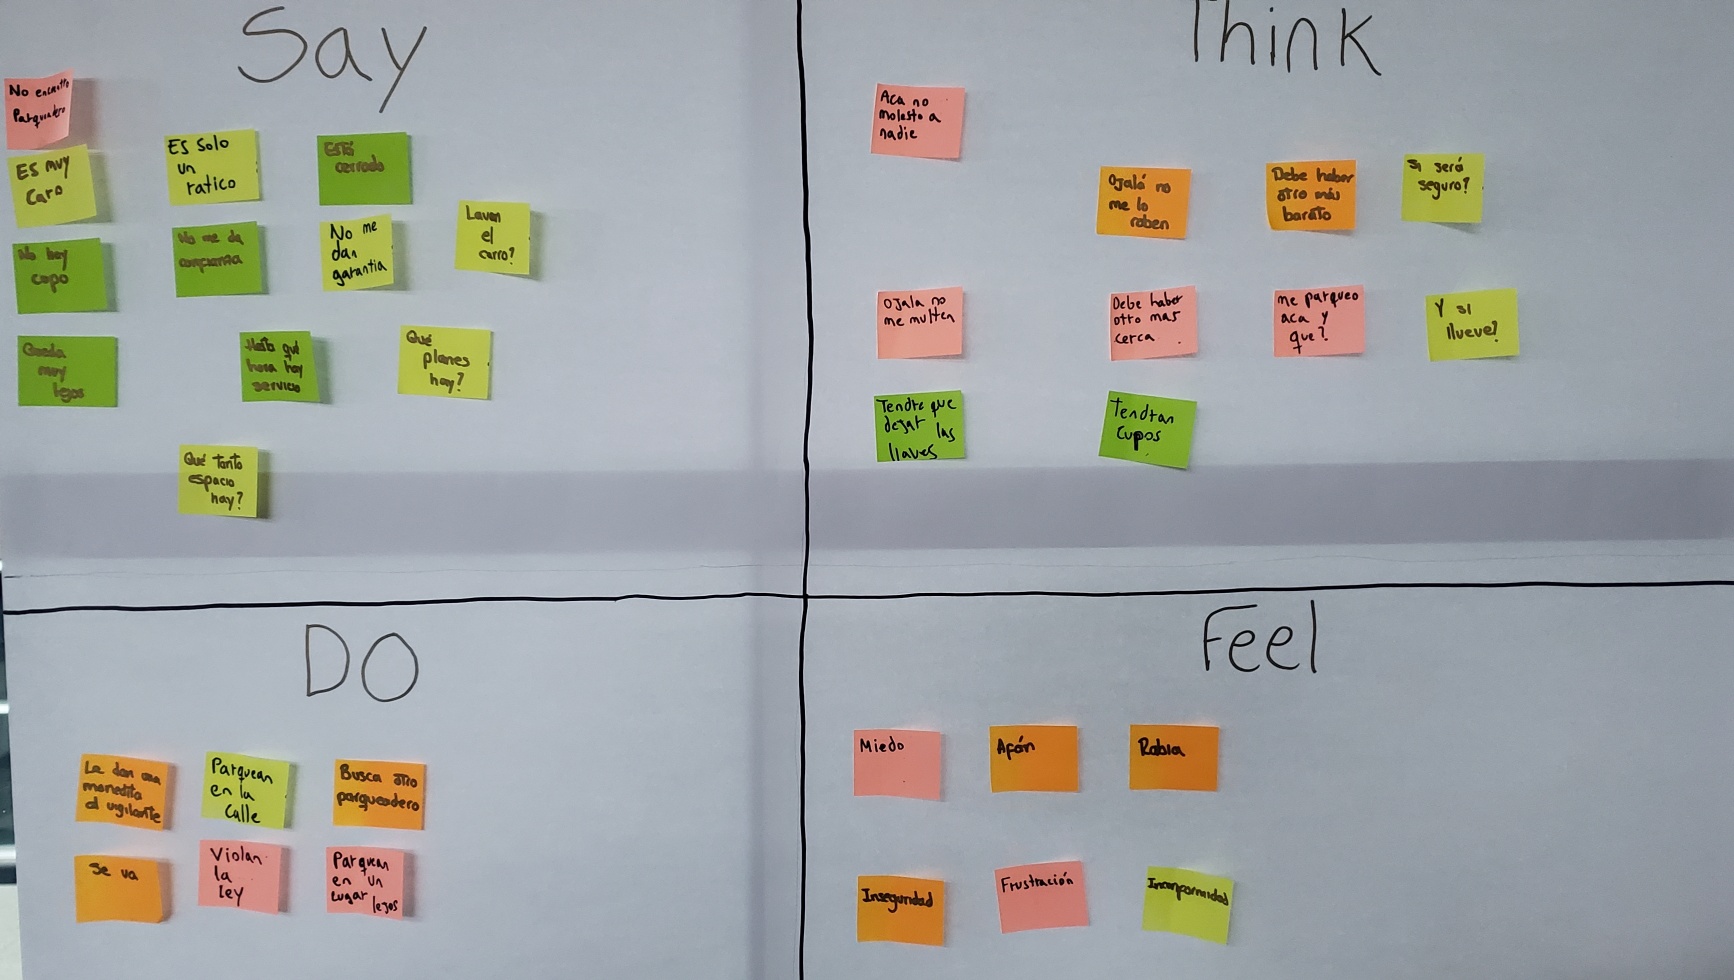 Say
No encuentro
Parqueadero
Es muy
caro
No hay
cupo
Queda
muy
lejos
Es solo
un
ratico
No me da
confianza
Está
cerrado
No me
dan
garantia
Lavan
el
carro?
Hasta qué
hora hay
servicio
Qué
planes
hay?
Qué tanto
espacio
hay?
Think
Aca no
molesto a
nadie
Ojalá no
me lo
roben
Debe haber
otro más
barato
Si será
seguro?
Ojala no
me multen
Debe haber
otro mas
cerca.
me parqueo
aca y
que?
Y si
llueve?
Tendre que
dejar las
llaves
Tendran
cupos
DO
Le dan una
monedita
al vigilante
Parquean
en la
calle
Busca otro
parqueadero
Se va
Violan
la
ley
Parquean
en un
lugar lejos
Feel
Miedo
Afán
Rabia
Inseguridad
Frustración
Inconformidad